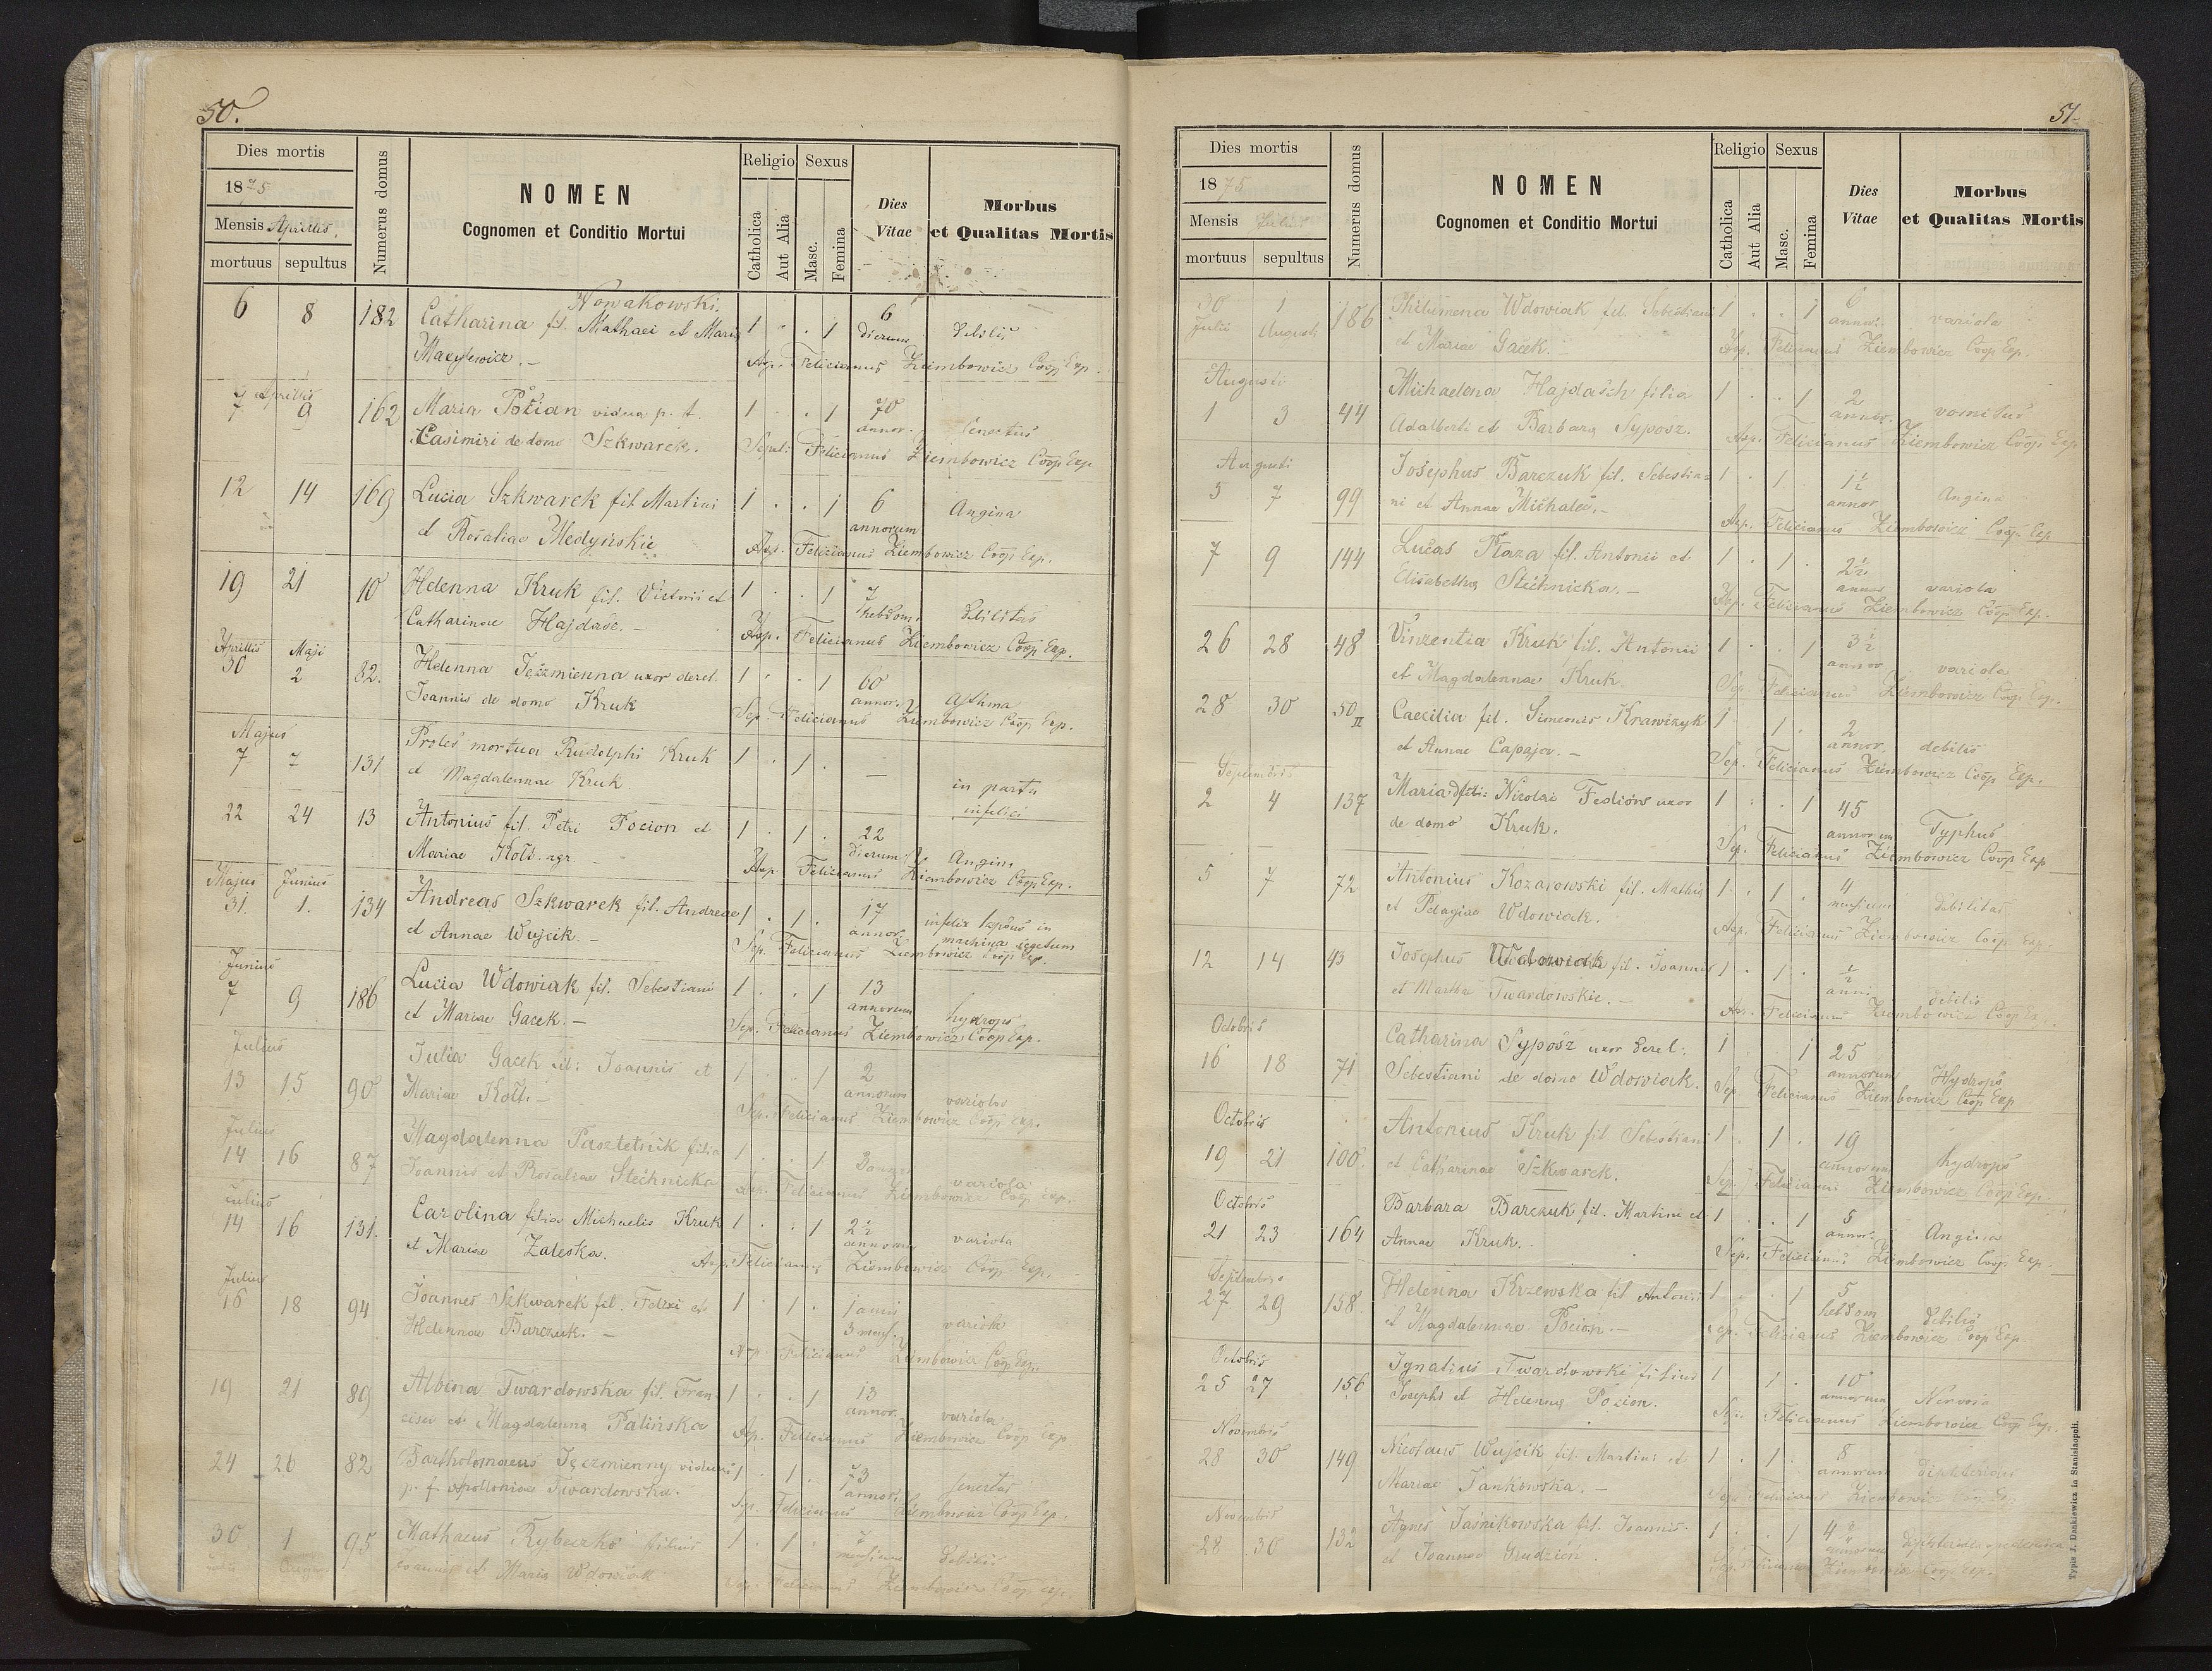 50.
Dies mortis
1875
Mensis Aprillis.
mortuus sepultus
Numerus domus
NOMEN
Cognomen et Conditio Mortui
Religio
Catholica
Aut Alia
Sexus
Masc.
Femina
Dies
Vitae
Morbus
et Qualitas Mortis
Nowakowski.
6 8 182 Catharina fil. Mathaei et Maria 1 " . 1 6 dierum debilis
Asp. Felicianus Ziembowicz Coop Exp.
7 Aprilis
7 9 162 Maria Pocian vidua p. t. 1 . . 1 70 annor. Senectus
Casimiri de domo Szkwarek.
Sepul: Felicianus Ziembowicz Coop Exp
12 14 169 Lucia Szkwarek fil Martini 1 . . 1 6 annorum Angina
et Rosaliae Medyńskie
Asp. Felicianus Ziembowicz Coop Exp.
19 21 10 Helenna Kruk fil. Victorii et 1 . . 1 7 hebdom. debilitas
Catharinae Hajdasc. —
Asp. Felicianus Ziembowicz Coop Exp.
Aprillis Maji
30 2 82. Helenna Jęczmienna uxor derel. 1 . . 1 60 annor. Asthma
Joannis de domo Kruk
Sep. Felicianus Ziembowicz Coop Exp.
Majus
7 7 131 Proles mortua Rudolphi Kruk 1 . 1 . — in partu infelici
et Magdalennae Kruk
22 24 13 Antonius fil. Petri Pocion et 1 . 1 . 22 dierum Angina
Mariae Kott. agr. —
Asp. Felicianus Ziembowicz Coop Exp.
Majus Junius
31. 1. 134 Andreas Szkwarek fil. Andreae 1 . 1 . 17 annor. infelix lapsus in machina segetum
et Annae Wujcik. —
Sep. Felicianus Ziembowicz Coop Exp.
Junius
7 9 186 Lucia Wdowiak fil. Sebestiani 1 . . 1 13 annorum hydrops
et Mariae Gacek. —
Sep. Felicianus Ziembowicz Coop Exp.
Julius
13 15 90 Julia Gacek fil: Joannis et 1 . . 1 2 annorum variola
Mariae Kott. —
Sep. Felicianus Ziembowicz Coop Exp.
Julius
14 16 87 Magdalenna Pasztetnik filia 1 . . 1 3 annor variola
Joannis et Rosaliae Stechnicka
Asp. Felicianus Ziembowicz Coop Exp.
Julius
14 16 131. Carolina filia Michaelis Kruk 1 . . 1 2½ annorum variola
et Mariae Zaleska.
Asp. Felicianus Ziembowicz Coop Exp.
Julius
16 18 94 Joannes Szkwarek fil. Felixi et 1 . 1 . 1 anni 3 mens. variola
Helennae Barczuk. —
Asp Felicianus Ziembowicz Coop Exp.
19 21 89 Albina Twardowska fil. Fran- 1 . . 1 13 annor. variola
cisci et Magdalenna Palińska
Asp. Felicianus Ziembowicz Coop Exp
24 26 82 Bartholomaeus Jęczmienny viduus 1 . 1 . 73 annor. senectus
p. f. Apolloniae Twardowska.
Sep. Felicianus Ziembowicz Coop Exp.
30 1 95 Mathaeus Rybeczko filius 1 . 1 . 7 mensium debilis
Joannis et Maria Wdowiak
Sep. Felicianus Ziembowicz Coop Exp.
51
Dies mortis
1875
Mensis Julius
mortuus sepultus
Numerus domus
NOMEN
Cognomen et Conditio Mortui
Religio
Catholica
Aut Alia
Sexus
Masc.
Femina
Dies
Vitae
Morbus
et Qualitas Mortis
30 Julii 1 Augusti 186 Philumena Wdowiak fil. Sebestiani 1 . . 1 6 annor. variola
et Mariae Gacek. —
Asp. Felicianus Ziembowicz Coop Exp.
Augusti
1 3 44 Michaelena Hajdasch filia 1 . . 1 2 annor. vomitus
Adalberti et Barbara Syposz.
Asp. Felicianus Ziembowicz Coop Exp
Augusti
5 7 99 Josephus Barczuk fil. Sebestia- 1 . 1 . 1½ annor Angina
ni et Annae Michalec. —
Asp. Felicianus Ziembowicz Coop Exp
7 9 144 Lucas Płaza fil. Antonii et 1 . 1 . 2½ annor variola
Elisabetha Stechnicka. —
Asp. Felicianus Ziembowicz Coop Exp.
26 28 48 Vinzentia Kruk fil. Antonii 1 . . 1 3½ annor variola
et Magdalennae Kruk.
Sep. Felicianus Ziembowicz Coop Exp.
28 30 50 II Caecilia fil. Simeonis Krawczyk 1 . 1 . 2 annor. debilis
et Annae Capaja. —
Sep. Felicianus Ziembowicz Coop Exp.
Septembris
2 4 137 Maria Nicolai Fediów uxor 1 . . 1 45 annorum Typhus
de domo Kruk.
Sep. Felicianus Ziembowicz Coop Exp
5 7 72 Antonius Kozarowski fil. Mathia 1 . 1 . 4 mensium debilitas
et Pelagiae Wdowiak.
Asp. Felicianus Ziembowicz Coop Exp.
12 14 43 Josephus Wdowiak fil. Joannis 1 . 1 . ½ anni debilis
et Martha Twardowskie. —
Asp. Felicianus Ziembowicz Coop Exp.
Octobris
16 18 71 Catharina Syposz uxor derel: 1 . . 1 25 annorum Hydrops
Sebestiani de domo Wdowiak.
Sep Felicianus Ziembowicz Coop Exp
Octobris
19 21 100. Antonius Kruk fil. Sebestiani 1 . 1 . 19 annorum hydrops
et Catharinae Szkwarek.
Sep. Felicianus Ziembowicz Coop Exp.
Octobris
21 23 164 Barbara Barczuk fil. Martini et 1 . . 1 5 annor. Angina
Annae Kruk. —
Sep. Felicianus Ziembowicz Coop Exp.
Septembris
27 29 158 Helenna Krzewska fil Antonii 1 . . 1 5 hebdom debilis
et Magdalennae Pocion. —
Sep. Felicianus Ziembowicz Coop Exp
Octobris
25 27 156 Ignatius Twardowski filius 1 . 1 . 10 annorum Nervosa
Josephi et Helenna Pocion.
Sep. Felicianus Ziembowicz Coop Exp.
Novembris
28 30 149 Nicolaus Wujcik fil. Martini et 1 . 1 . 8 annorum
Mariae Jankowska. —
Sep. Felicianus Ziembowicz Coop Exp
Novembris
28 30 132 Agnes Jaśnikowska fil. Joannis 1 . . 1 4 annorum
et Joannae Grudzień.
Sep. Felicianus Ziembowicz Coop Exp.
Typis J. Dankiewicz in Stanislaopoli.